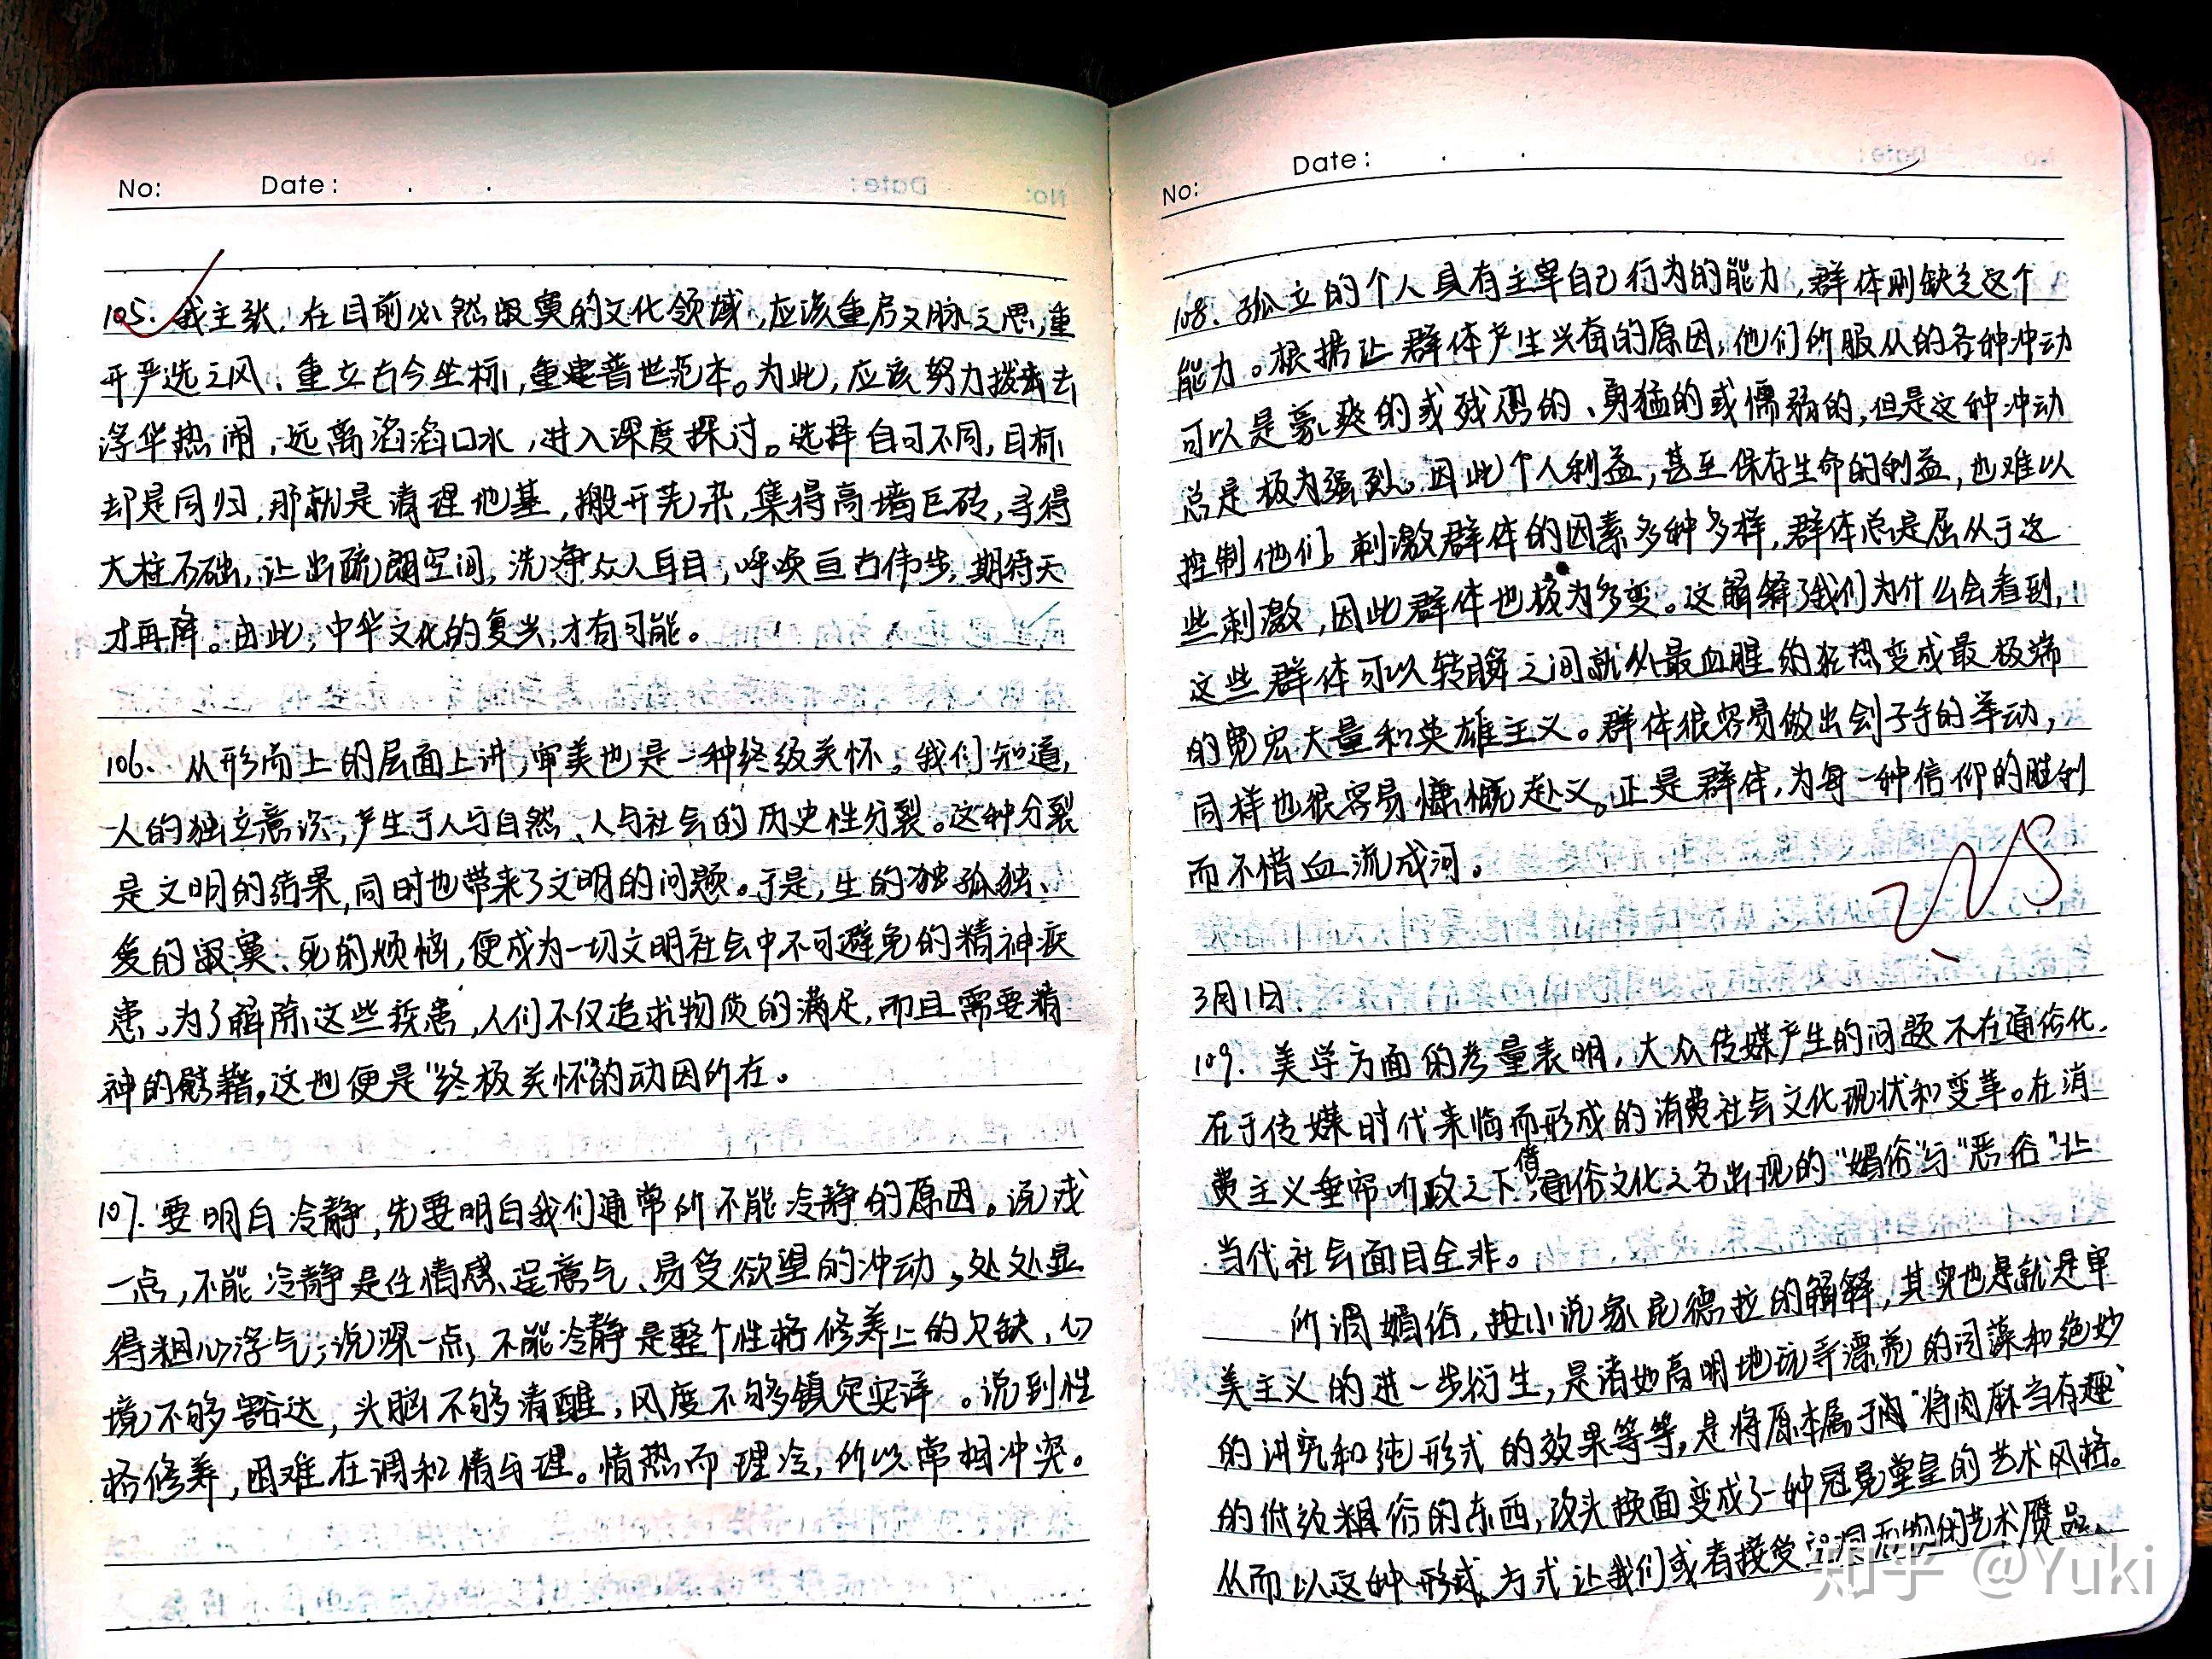 No: Date: . .
105. 我主张,在目前必然寂寞的文化领域,应该重启文脉之思,重
开严选之风、重立古今坐标,重建普世范本。为此,应该努力拨去
浮华热闹,远离滔滔口水,进入深度探讨。选择自可不同,目标
却是同归,那就是清理地基,搬开芜杂,集得高墙巨砖,寻得
大柱石础,让出疏朗空间,洗净众人耳目,呼唤亘古伟步,期待天
才再降。由此,中华文化的复兴,才有可能。
106. 从形而上的层面上讲,审美也是一种终级关怀。我们知道,
人的独立意识,产生于人与自然、人与社会的历史性分裂。这种分裂
是文明的结果,同时也带来了文明的问题。于是,生的独孤独、
爱的寂寞、死的烦恼,便成为一切文明社会中不可避免的精神疾
患。为了解除这些疾患,人们不仅追求物质的满足,而且需要精
神的慰藉。这也便是“终极关怀”的动因所在。
107. 要明白冷静,先要明白我们通常所不能冷静的原因。说浅
一点,不能冷静是任情感、逞意气、易受欲望的冲动,处处显
得粗心浮气;说深一点,不能冷静是整个性格修养上的欠缺,心
境不够豁达,头脑不够清醒,风度不够镇定安详。说到性
格修养,困难在调和情与理。情热而理冷,所以常相冲突。
No: Date: . .
108. 孤立的个人具有主宰自己行为的能力,群体则缺乏这个
能力。根据让群体产生兴奋的原因,他们所服从的各种冲动
可以是豪爽的或残忍的、勇猛的或懦弱的,但是这种冲动
总是极为强烈。因此个人利益,甚至保存生命的利益,也难以
控制他们。刺激群体的因素多种多样,群体总是屈从于这
些刺激,因此群体也极为多变。这解释了我们为什么会看到,
这些群体可以转瞬之间就从最血腥的狂热变成最极端
的宽宏大量和英雄主义。群体很容易做出刽子手的举动,
同样也很容易慷慨赴义。正是群体,为每一种信仰的胜利
而不惜血流成河。
3月1日.
109. 美学方面的考量表明,大众传媒产生的问题不在通俗化,
在于传媒时代来临而形成的消费社会文化现状和变革。在消
费主义垂帘听政之下,借通俗文化之名出现的“媚俗”与“恶俗”让
当代社会面目全非。
所谓媚俗,按小说家昆德拉的解释,其实也是就是审
美主义的进一步衍生,是诸如高明地玩弄漂亮的词藻和绝妙
的讲究和纯形式的效果等等,是将原本属于肉“将肉麻当有趣”
的低级粗俗的东西,改头换面变成了一种冠冕堂皇的艺术风格。
从而以这种形式、方式让我们或者接受空洞无物的艺术赝品、
知乎 @Yuki